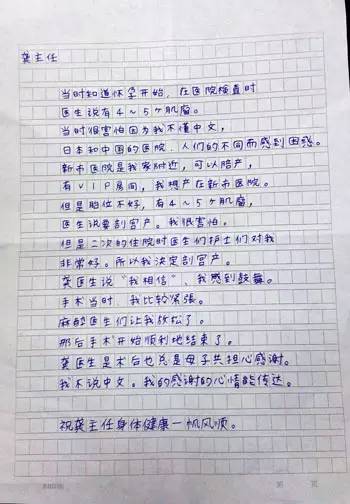 龚主任
当时知道怀孕开始,在医院检查时
医生说有4~5ヶ肌瘤。
当时很害怕因为我不懂中文,
日本和中国的医院、人们的不同而感到困惑。
新市医院是我家附近,可以陪产,
有VIP房间,我想产在新市医院。
但是胎位不好,有4~5ヶ肌瘤,
医生说要剖宫产。我很害怕。
但是二次的住院时医生们护士们对我
非常好。所以我决定剖宫产。
龚医生说“我相信”、我感到鼓舞。
手术当时,我比较紧张。
麻醉医生们让我放松了。
那后手术开始顺利地结束了。
龚医生是术后也总是母子共担心感谢。
我不说中文。我的感谢的心情能传达。
祝龚主任身体健康一帆风顺。
第 页